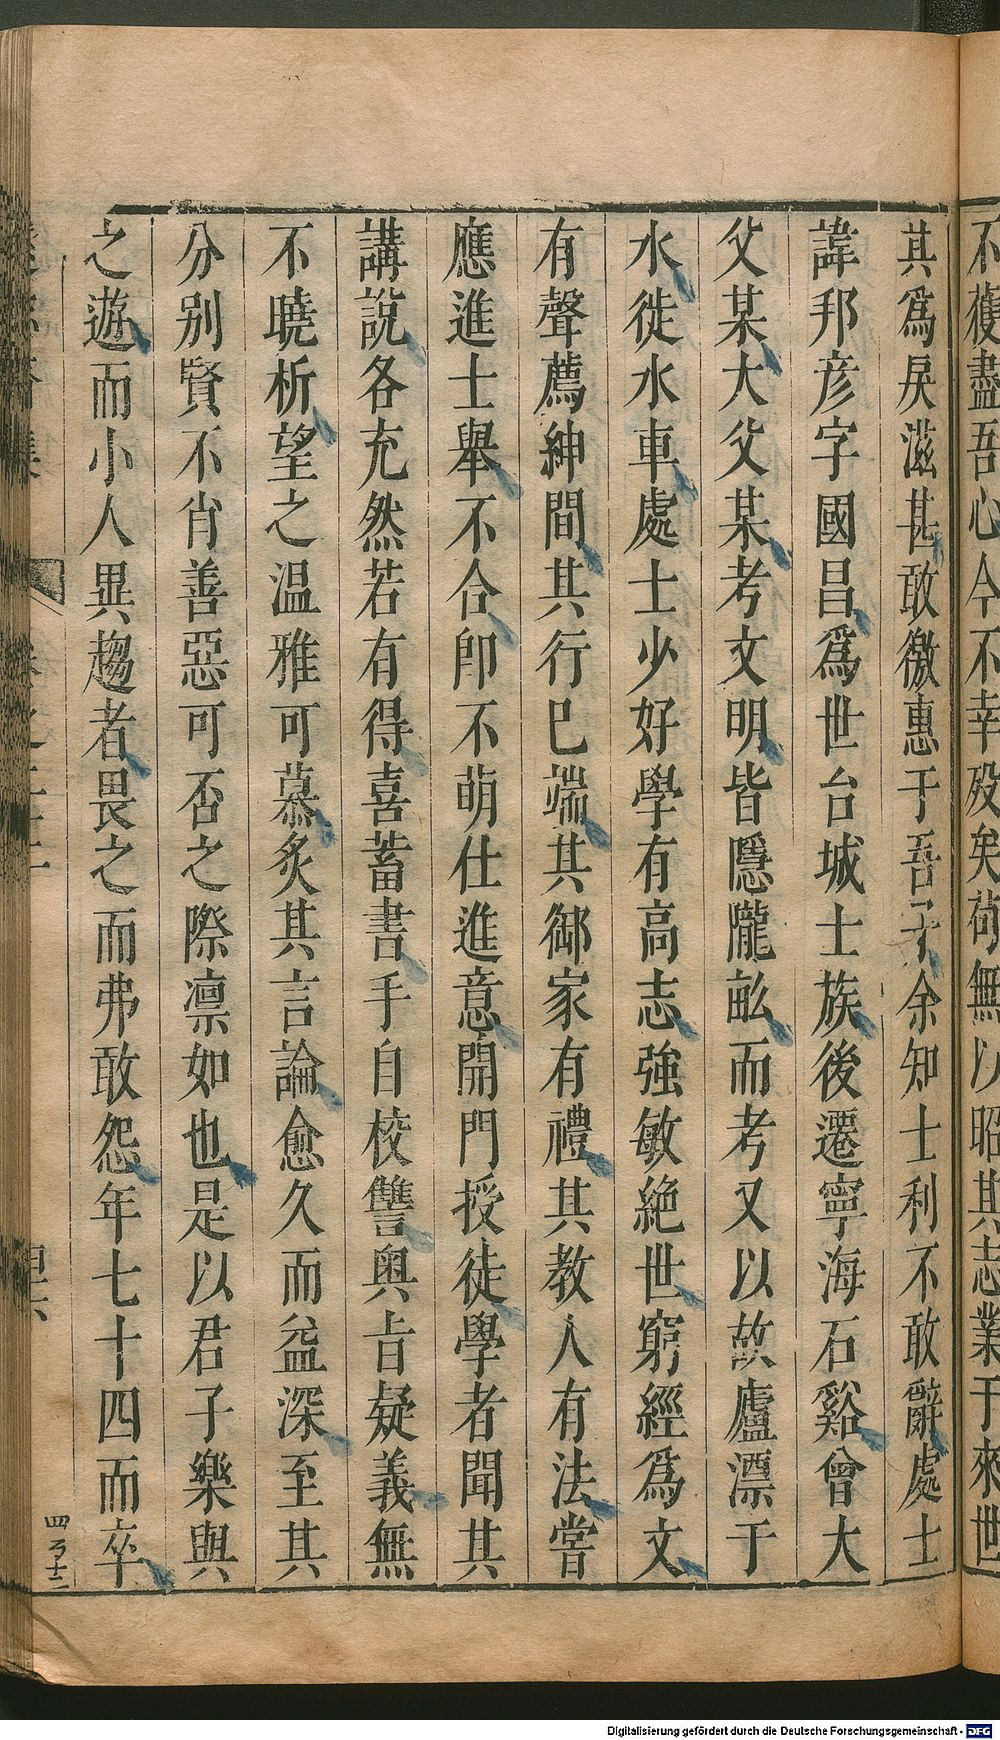 不獲盡吾心今不幸歿矣茍無以昭其志業于來世
其爲戾滋甚敢徼惠于吾子余知士利不敢辭處士
諱邦彦字國昌爲世台城士族後遷寧海石谿曾大
父某大父某考文明皆隱隴畝而考又以故廬漂于
水徙水車處士少好學有高志強敏絶世窮經爲文
有聲薦紳間其行巳端其御家有禮其教人有法嘗
應進士舉不合卽不萌仕進意開門授徒學者聞其
講說各充然若有得喜蓄書手自校讐奥㫖疑義無
不曉析望之溫雅可慕炙其言論愈久而益深至其
分别賢不肖善惡可否之際凛如也是以君子樂與
之遊而小人異趨者畏之而弗敢怨年七十四而卒
卷之二十二
四百十二
Digitalisierung gefördert durch die Deutsche Forschungsgemeinschaft - DFG